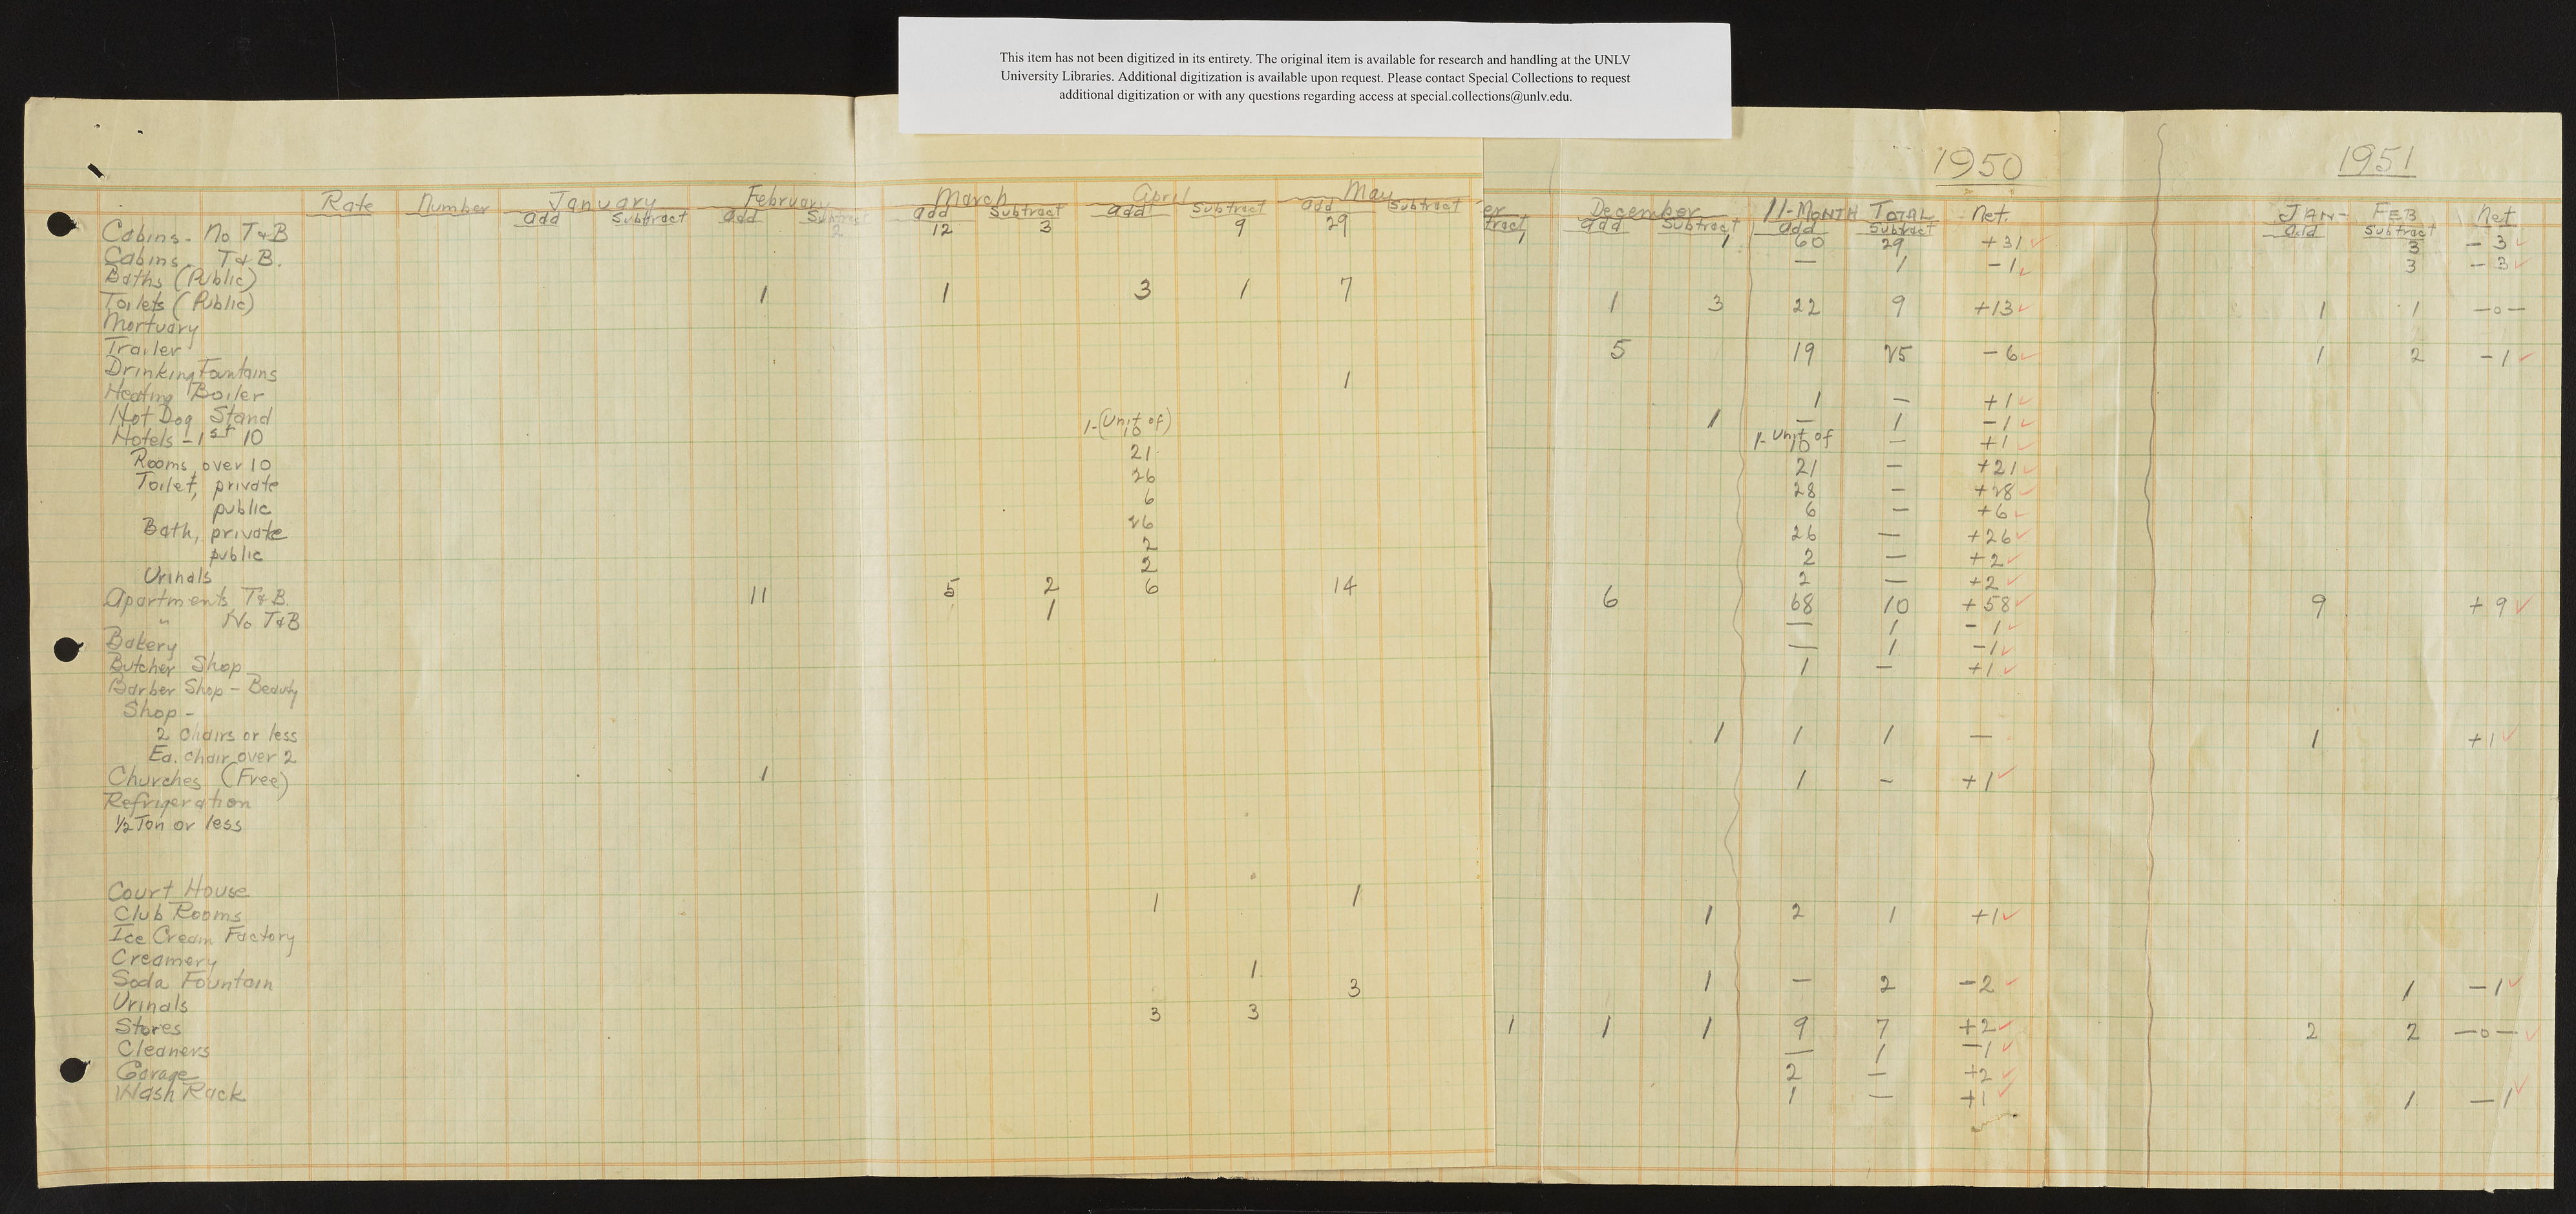 This item has not been digitized in its entirety. The original item is available for research and handling at the UNLV
University Libraries. Additional digitization is available upon request. Please contact Special Collections to request
additional digitization or with any questions regarding access at special.collections@unlv.edu.
1950 1951
Rate Number January February March April May December 11-MONTH TOTAL Net. JAN- FEB Net
add Subtract add Subtract add Subtract add Subtract add Subtract tract add Subtract add Subtract add Subtract
Cabins - No T&B 2 12 3 9 29 1 1 60 29 +31 3 -3
Cabins - T&B. — 1 -1 3 -3
Baths (Public)
Toilets (Public) 1 1 3 1 7 1 3 22 9 +13 1 1 -0-
Mortuary
Trailer 5 19 25 -6 1 2 -1
Drinking Fountains
Heating Boiler 1 1 — +1
Hot Dog Stand 1 — 1 -1
Hotels - 1st 10 1-(Unit of 10) 1-Unit of 10 — +1
Rooms, over 10 21 21 — +21
Toilet, private 26 28 — +28
public 6 6 — +6
Bath, private 26 26 — +26
public 2 2 — +2
Urinals 2 2 — +2
Apartments T&B. 11 5 2 6 14 6 68 10 +58 9 +9
" No T&B 1 — 1 -1
Bakery — 1 -1
Butcher Shop 1 — +1
Barber Shop - Beauty
Shop -
2 chairs or less 1 1 1 — 1 +1
Ea. chair over 2
Churches (Free) 1 1 — +1
Refrigeration
1/2 Ton or less
Court House
Club Rooms 1 1 1 2 1 +1
Ice Cream Factory
Creamery
Soda Fountain 1 1 — 2 -2 1 -1
Urinals 3
Stores 3 3 1 1 1 9 7 +2 2 2 -0-
Cleaners — 1 -1
Garage 2 — +2
Wash Rack 1 — +1 1 -1